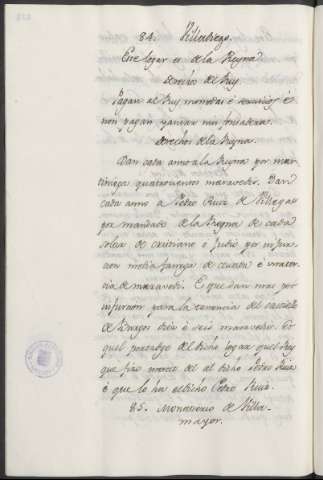 84. Villadiego.
Este logar es de la Reyna
derechos del Rey.
Pagan al Rey monedas é servicios é
non pagan yantar nin fonsadera.
derechos de la Reyna.
Dan cada anno á la Reyna por mar-
tiniega quatrocientos maravedis. Dan
cada anno á Pedro Ruiz de Villegas
por mandado de la Reyna de cada
solar de christiano é Judio por infurc-
cion media fanega de cevada é
de maravedi. E que dan mas por
infurcion para la tenencia del castiello
de Burgos trese é seis maravedis. Et
quel portadgo del dicho logar quel Rey
que fiso merced del al dicho Pedro Ruiz
é que lo ha el dicho Pedro Ruiz.
85. Monasterio de Villa-
mayor.